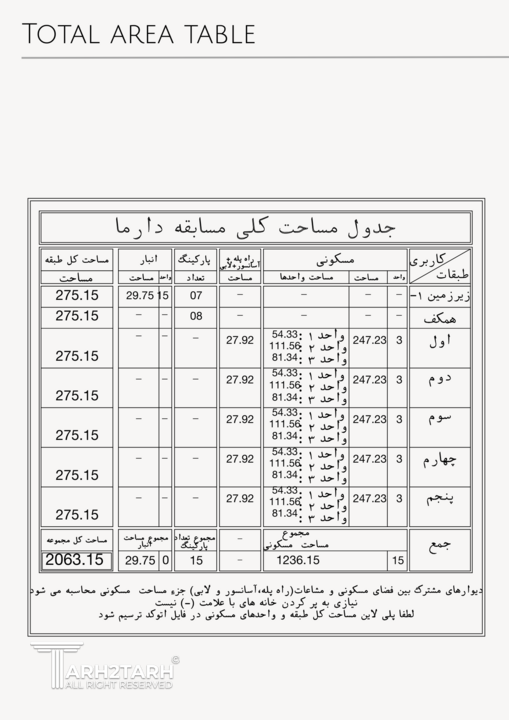 TOTAL AREA TABLE
جدول مساحت کلی مسابقه دارما
کاربری
طبقات
مسکونی
راه پله و آسانسور+لابی
پارکینگ
انبار
مساحت کل طبقه
واحد
مساحت
مساحت واحدها
مساحت
تعداد
واحد
مساحت
مساحت
زیرزمین ۱- – – – – 07 15 29.75 275.15
همکف – – – – 08 – – 275.15
اول 3 247.23 27.92 – – – 275.15
واحد ۱ :54.33
واحد ۲ :111.56
واحد ۳ :81.34
دوم 3 247.23 27.92 – – – 275.15
واحد ۱ :54.33
واحد ۲ :111.56
واحد ۳ :81.34
سوم 3 247.23 27.92 – – – 275.15
واحد ۱ :54.33
واحد ۲ :111.56
واحد ۳ :81.34
چهارم 3 247.23 27.92 – – – 275.15
واحد ۱ :54.33
واحد ۲ :111.56
واحد ۳ :81.34
پنجم 3 247.23 27.92 – – – 275.15
واحد ۱ :54.33
واحد ۲ :111.56
واحد ۳ :81.34
جمع
مجموع مساحت مسکونی
–
مجموع تعداد پارکینگ
مجموع مساحت انبار
مساحت کل مجموعه
15 1236.15 – 15 0 29.75 2063.15
دیوارهای مشترک بین فضای مسکونی و مشاعات(راه پله،آسانسور و لابی) جزء مساحت مسکونی محاسبه می شود
نیازی به پر کردن خانه های با علامت (-) نیست
لطفا پلی لاین مساحت کل طبقه و واحدهای مسکونی در فایل اتوکد ترسیم شود
TARH2TARH©
ALL RIGHT RESERVED